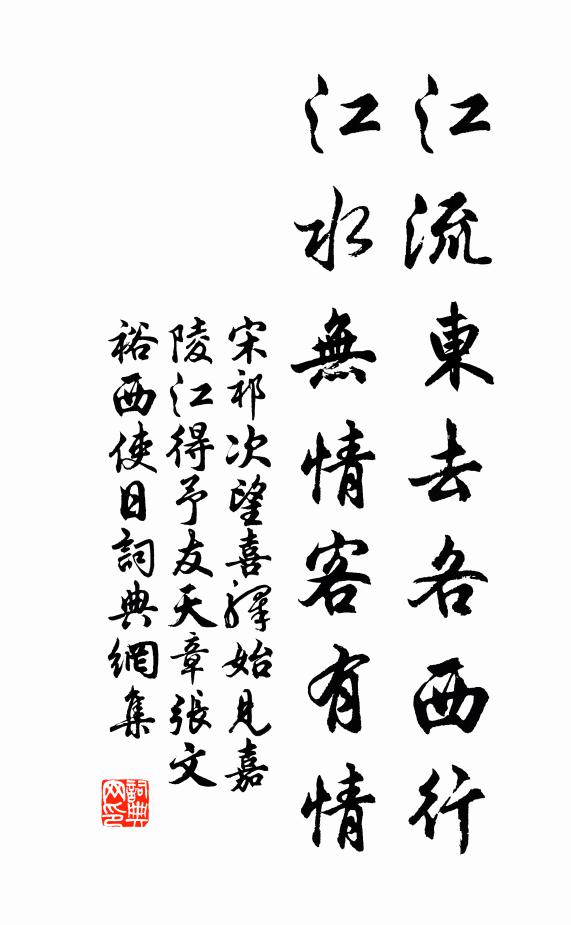 江流東去各西行
江水無情客有情
宋祁次望喜驛始見嘉
陵江得予友天章張文
裕西使日詞典網集
詞典网印